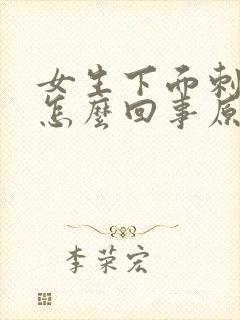 女生下面刺
怎麼回事原
李荣宏